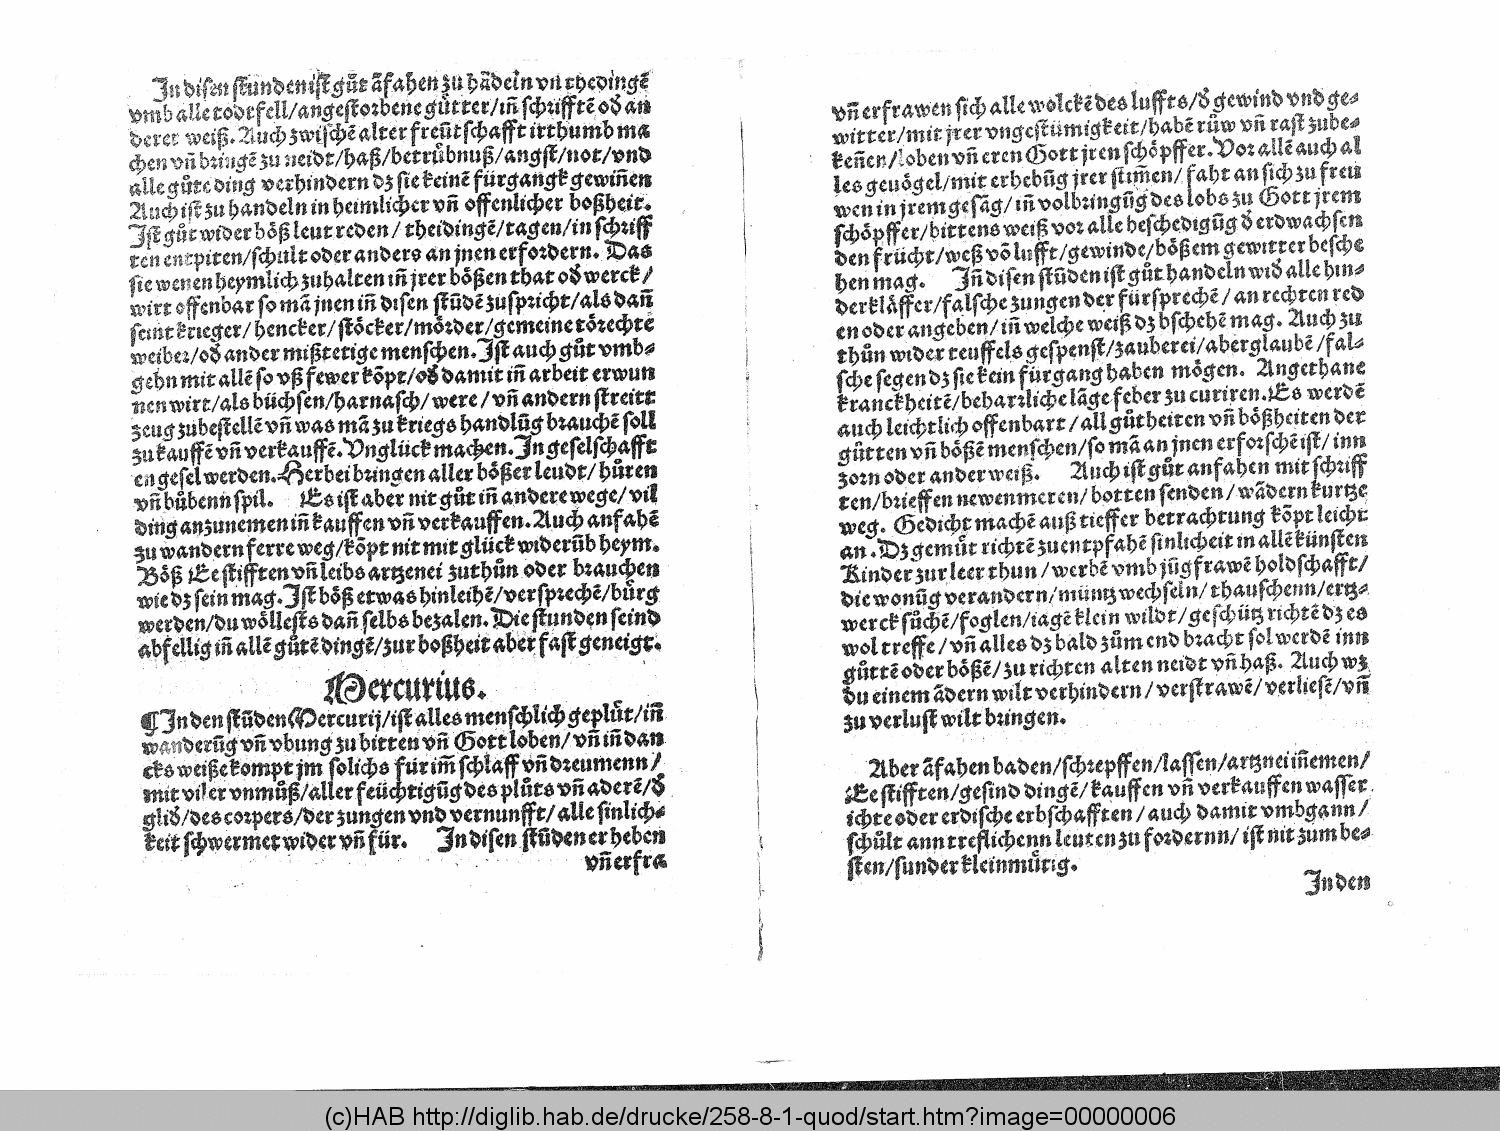 In disen stunden ist gůt āfahen zu hādeln vñ thedingē
vmb alle todtfell/angestorbene gůtter/iñ schrifftē od an
derer weiß. Auch zwischē alter freūtschafft irthumb ma
chen vñ bringē zu neidt/haß/betrůbnuß/angst/not/vnd
alle gůte ding verhindern dz sie keinē fürgangk gewiñen
Auch ist zu handeln in heimlicher vñ offenlicher boßheit.
Ist gůt wider bőß leut reden/ theidingē/tagen/in schriff
ten entpiten/schult oder anders an jnen erfordern. Das
sie wenen heymlich zuhalten iñ jrer bőßen that od werck/
wirt offenbar so mā jnen iñ disen stūdē zuspricht/als dañ
seint krieger/ hencker/stőcker/mőrder/gemeine tőrechte
weiber/od ander mißtetige menschen. Ist auch gůt vmb⸗
gehn mit allē so vß fewer kōpt/od damit iñ arbeit erwun
nen wirt/als büchsen/harnasch/were/vñ andern streitt
zeug zubestellē vñ was mā zu kriegs handlūg brauchē soll
zu kauffē vñ verkauffē. Vnglück machen. In geselschafft
en gesel werden. Herbei bringen aller bőßer leudt/hůren
vñ bůbenn spil. Es ist aber nit gůt iñ andere wege/vil
ding anzunemen iñ kauffen vñ verkauffen. Auch anfahē
zu wandern ferre weg/kōpt nit mit glück widerūb heym.
Bőß Ee stifften vñ leibs artzenei zuthůn oder brauchen
wie dz sein mag. Ist bőß etwas hinleihē/versprechē/bürg
werden/du wőllests dañ selbs bezalen. Die stunden seind
abfellig iñ allē gůtē dingē/zur boßheit aber fast geneigt.
Mercurius.
¶ In den stūden Mercurij/ist alles menschlich geplůt/iñ
wanderūg vñ vbung zu bitten vñ Gott loben/vñ iñ dan
cks weiße kompt jm solichs für im̄ schlaff vñ dreumenn/
mit viler vnmůß/aller feüchtigūg des plůts vñ aderē/d
glid/des corpers/der zungen vnd vernunfft/alle sinlich⸗
keit schwermet wider vñ für. In disen stūden erheben
vñ erfra
vñ erfrawen sich alle wolckē des luffts/d gewind vnd ge⸗
witter/mit jrer vngestümigkeit/habē růw vñ rast zube⸗
keñen/loben vñ eren Gott jren schőpffer. Vor allē auch al
les geuőgel/mit erhebūg jrer stim̄en/ faht an sich zu freu
wen in jrem gesāg/iñ volbringūg des lobs zu Gott jrem
schőpffer/bittens weiß vor alle beschedigūg d erdwachsen
den frücht/weß vō lufft/gewinde/bőßem gewitter besche
hen mag. Iñ disen stūden ist gůt handeln wid alle hin⸗
derkläffer/falsche zungen der fürsprechē/an rechten red
en oder angeben/iñ welche weiß dz bschehē mag. Auch zu
thůn wider teuffels gespenst/zauberei/aberglaubē/fal⸗
sche segen dz sie kein fürgang haben mőgen. Angethane
kranckheitē/beharrliche lāge feber zu curiren. Es werdē
auch leichtlich offenbart/all gůtheiten vñ bőßheiten der
gůtten vñ bőßē menschen/so mā an jnen erforschē ist/inn
zorn oder ander weiß. Auch ist gůt anfahen mit schriff
ten/brieffen newenmeren/botten senden/wādern kurtze
weg. Gedicht machē auß tieffer betrachtung kōpt leicht
an. Dz gemůt richtē zuentpfahē sinlicheit in allē künsten
Kinder zur leer thun/werbē vmb jūgfrawē holdschafft/
die wonūg verandern/müntz wechseln/thauschenn/ertz⸗
werck sůchē/foglen/iagē klein wildt/geschütz richtē dz es
wol treffe/vñ alles dz bald zům end bracht sol werdē inn
gůttē oder bőßē/zu richten alten neidt vñ haß. Auch wz
du einem ādern wilt verhindern/verstrawē/verliesē/vñ
zu verlust wilt bringen.
Aber āfahen baden/schrepffen/lassen/artznei im̄emen/
Ee stifften/gesind dingē/kauffen vñ verkauffen wasser
ichte oder erdische erbschafften/auch damit vmbgann/
schůlt ann treflichenn leuten zu fordernn/ist nit zum be⸗
sten/sunder kleinmůtig.
In den
(c)HAB http://diglib.hab.de/drucke/258-8-1-quod/start.htm?image=00000006